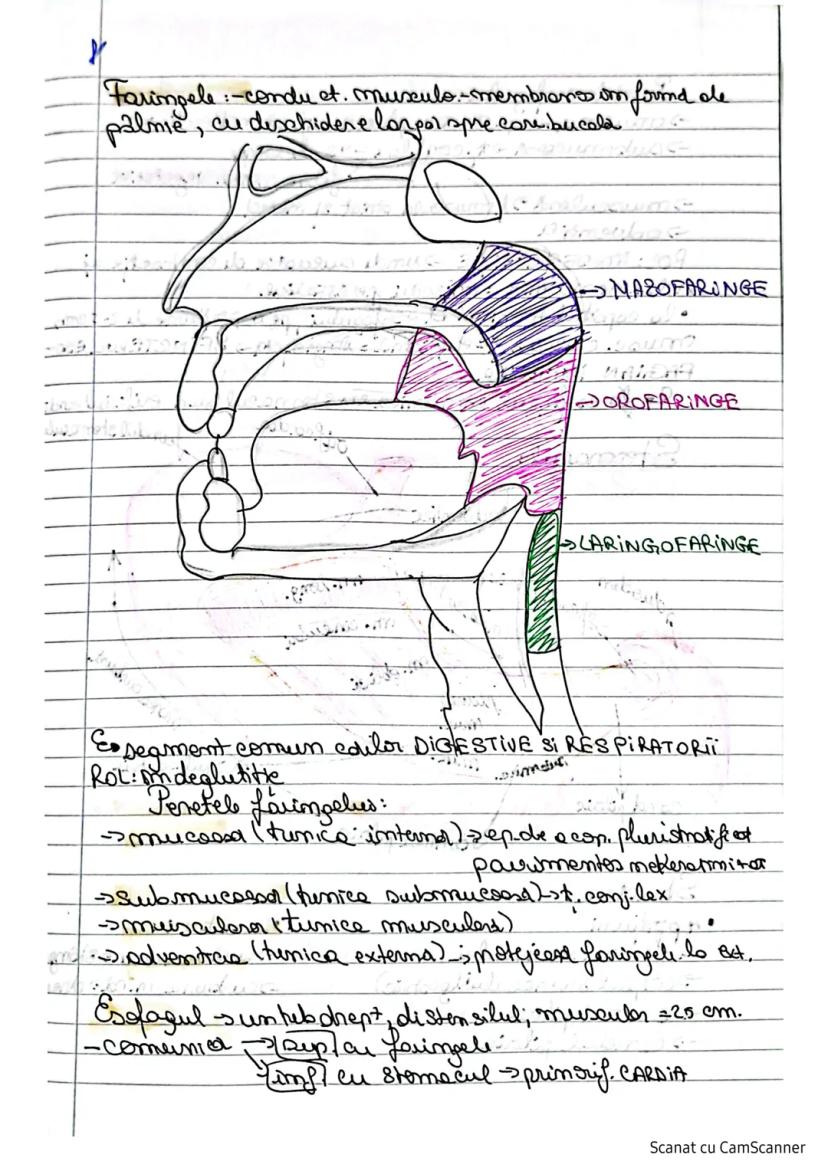 Faringele :- conduct. musculo-membranos in formă de
pâlnie, cu deschidere largă spre cav. bucală
→ NAZOFARINGE
→ OROFARINGE
→ LARINGOFARINGE
E segment comun căilor DIGESTIVE SI RESPIRATORII
Rol: în deglutiție
Peretele faringelui:
→ mucoasă (tunica internă) → ep. de acop. pluristratificat
pavimentos nekeratinizat
→ submucoasă (tunica submucoasă) → ț. conj. lax
→ musculară (tunica musculară)
→ adventicea (tunica externă) → protejează faringele la ext.
Esofagul → un tub drept, distensibil, muscular ≈ 25 cm.
- comunică → sup cu faringele
inf cu stomacul → prin orif. CARDIA
Scanat cu CamScanner